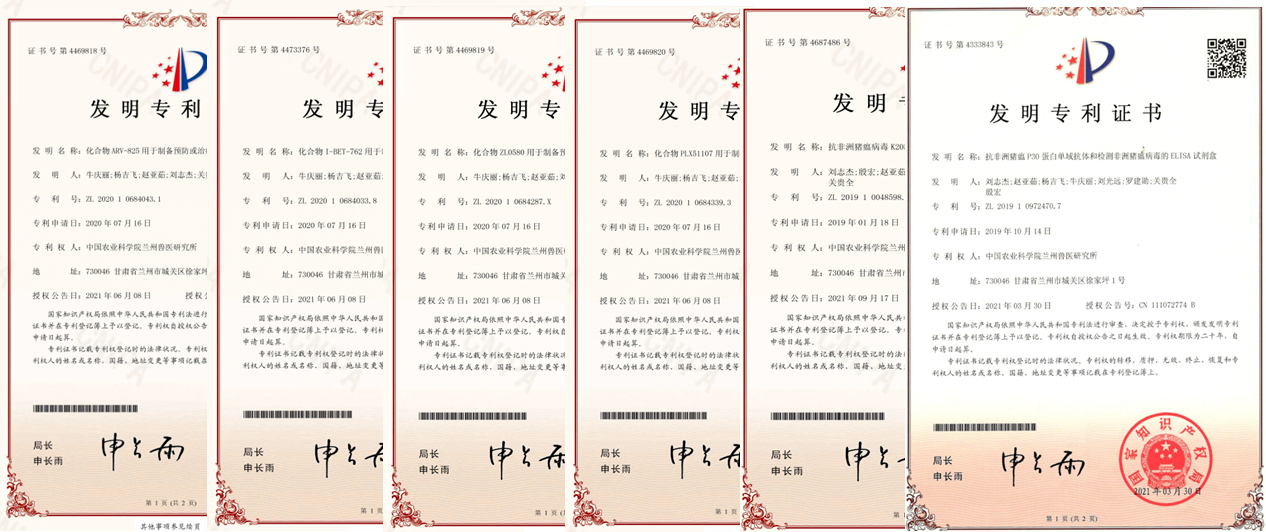 证书号第4469818号
发明专利
发明名称：化合物ARV-825用于制备预防或治
发明人：牛庆丽;杨吉飞;赵亚茹;刘志杰;关
专利号：ZL 2020 1 0684043.1
专利申请日：2020年07月16日
专利权人：中国农业科学院兰州兽医研究所
地址：730046 甘肃省兰州市城关区徐家坪
授权公告日：2021年06月08日 授权公
国家知识产权局依照中华人民共和国专利法进行
证书并在专利登记簿上予以登记。专利权自授权公告
申请日起算。
专利证书记载专利权登记时的法律状况。专利权
利权人的姓名或名称、国籍、地址变更等事项记载在
局长
申长雨
第1页(共2页)
其他事项参见续页
证书号第4473376号
发明专
发明名称：化合物I-BET-762用于
发明人：牛庆丽;杨吉飞;赵亚茹;
专利号：ZL 2020 1 0684033.8
专利申请日：2020年07月16日
专利权人：中国农业科学院兰州兽
地址：730046 甘肃省兰州市城
授权公告日：2021年06月08日
国家知识产权局依照中华人民共和国
证书并在专利登记簿上予以登记。专利权
申请日起算。
专利证书记载专利权登记时的法律状
利权人的姓名或名称、国籍、地址变更等
局长
申长雨
第1页
证书号第4469819号
发明专
发明名称：化合物ZL0580用于制备预
发明人：牛庆丽;杨吉飞;赵亚茹;刘
专利号：ZL 2020 1 0684287.X
专利申请日：2020年07月16日
专利权人：中国农业科学院兰州兽医
地址：730046 甘肃省兰州市城关
授权公告日：2021年06月08日
国家知识产权局依照中华人民共和国专
证书并在专利登记簿上予以登记。专利权自
申请日起算。
专利证书记载专利权登记时的法律状况
利权人的姓名或名称、国籍、地址变更等事
局长
申长雨
第1页
证书号第4469820号
发明专
发明名称：化合物PLX51107用于制
发明人：牛庆丽;杨吉飞;赵亚茹;
专利号：ZL 2020 1 0684339.3
专利申请日：2020年07月16日
专利权人：中国农业科学院兰州兽
地址：730046 甘肃省兰州市城
授权公告日：2021年06月08日
国家知识产权局依照中华人民共和国
证书并在专利登记簿上予以登记。专利权
申请日起算。
专利证书记载专利权登记时的法律状
利权人的姓名或名称、国籍、地址变更等
局长
申长雨
第1页
证书号第4687486号
发明
发明名称：抗非洲猪瘟病毒K20
发明人：刘志杰;殷宏;赵亚茹
关贵全
专利号：ZL 2019 1 0048598.
专利申请日：2019年01月18日
专利权人：中国农业科学院兰州兽
地址：730046 甘肃省兰州市城
授权公告日：2021年09月17日
国家知识产权局依照中华人民共和国
证书并在专利登记簿上予以登记。专利权
申请日起算。
专利证书记载专利权登记时的法律状
利权人的姓名或名称、国籍、地址变更等
局长
申长雨
第1页
证书号第4333843号
发明专利证书
发明名称：抗非洲猪瘟P30蛋白单域抗体和检测非洲猪瘟病毒的ELISA试剂盒
发明人：刘志杰;赵亚茹;杨吉飞;牛庆丽;刘光远;罗建勋;关贵全
殷宏
专利号：ZL 2019 1 0972470.7
专利申请日：2019年10月14日
专利权人：中国农业科学院兰州兽医研究所
地址：730046 甘肃省兰州市城关区徐家坪1号
授权公告日：2021年03月30日 授权公告号：CN 111072774 B
国家知识产权局依照中华人民共和国专利法进行审查，决定授予专利权，颁发发明专利
证书并在专利登记簿上予以登记。专利权自授权公告之日起生效。专利权期限为二十年，自
申请日起算。
专利证书记载专利权登记时的法律状况。专利权的转移、质押、无效、终止、恢复和专
利权人的姓名或名称、国籍、地址变更等事项记载在专利登记簿上。
局长
申长雨
国家知识产权局
2021年03月30日
第1页(共2页)